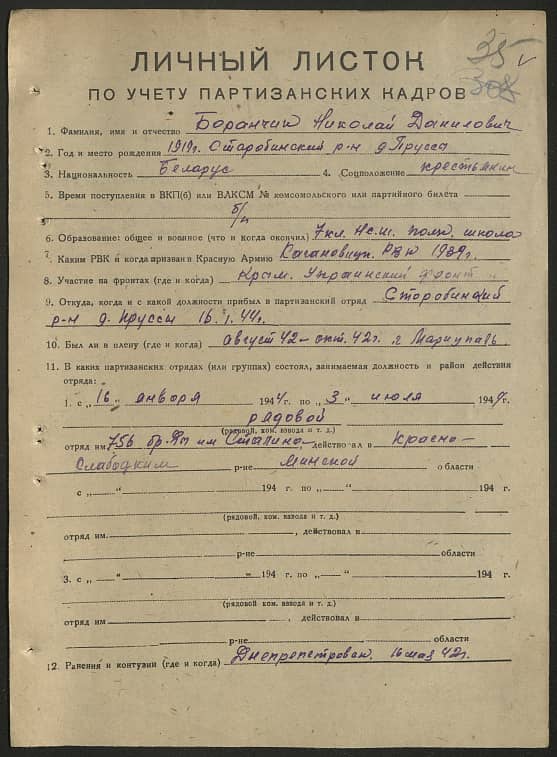 35
308
ЛИЧНЫЙ ЛИСТОК
ПО УЧЕТУ ПАРТИЗАНСКИХ КАДРОВ
1. Фамилия, имя и отчество Боранчик Николай Данилович
2. Год и место рождения 1919г. Старобинский р-н д. Прусса
3. Национальность Беларус 4. Соцположение крестьянин
5. Время поступления в ВКП(б) или ВЛКСМ № комсомольского или партийного билета
б/п
6. Образование: общее и военное (что и когда окончил) 7 кл. Н.с.ш. полк. школа
7. Каким РВК и когда призван в Красную Армию Кагановицк. РВК 1939г.
8. Участие на фронтах (где и когда) Крым. Украинский фронт
9. Откуда, когда и с какой должности прибыл в партизанский отряд Старобинский
р-н д. Пруссы 16.1.44г.
10. Был ли в плену (где и когда) август 42 – окт. 42г. г Мариупаль
11. В каких партизанских отрядах (или группах) состоял, занимаемая должность и район действия
отряда:
1. с „16 „ января 1944г. по „3 „ июля 1944г.
рядовой
(рядовой, ком. взвода и т. д.)
отряд им 756 бр. им Сталина, действовал в Красно-
Слабодким р-не Минской области
с „ “ 194 г. по „ “ 194 г.
(рядовой, ком. взвода и т. д.)
отряд им. , действовал в
р-не области
3. с „ “ 194 г. по „ “ 194 г.
(рядовой, ком. взвода и т. д.)
отряд им , действовал в
р-не области
12. Ранения и контузии (где и когда) Днепропетрован. 16 мая 42г.